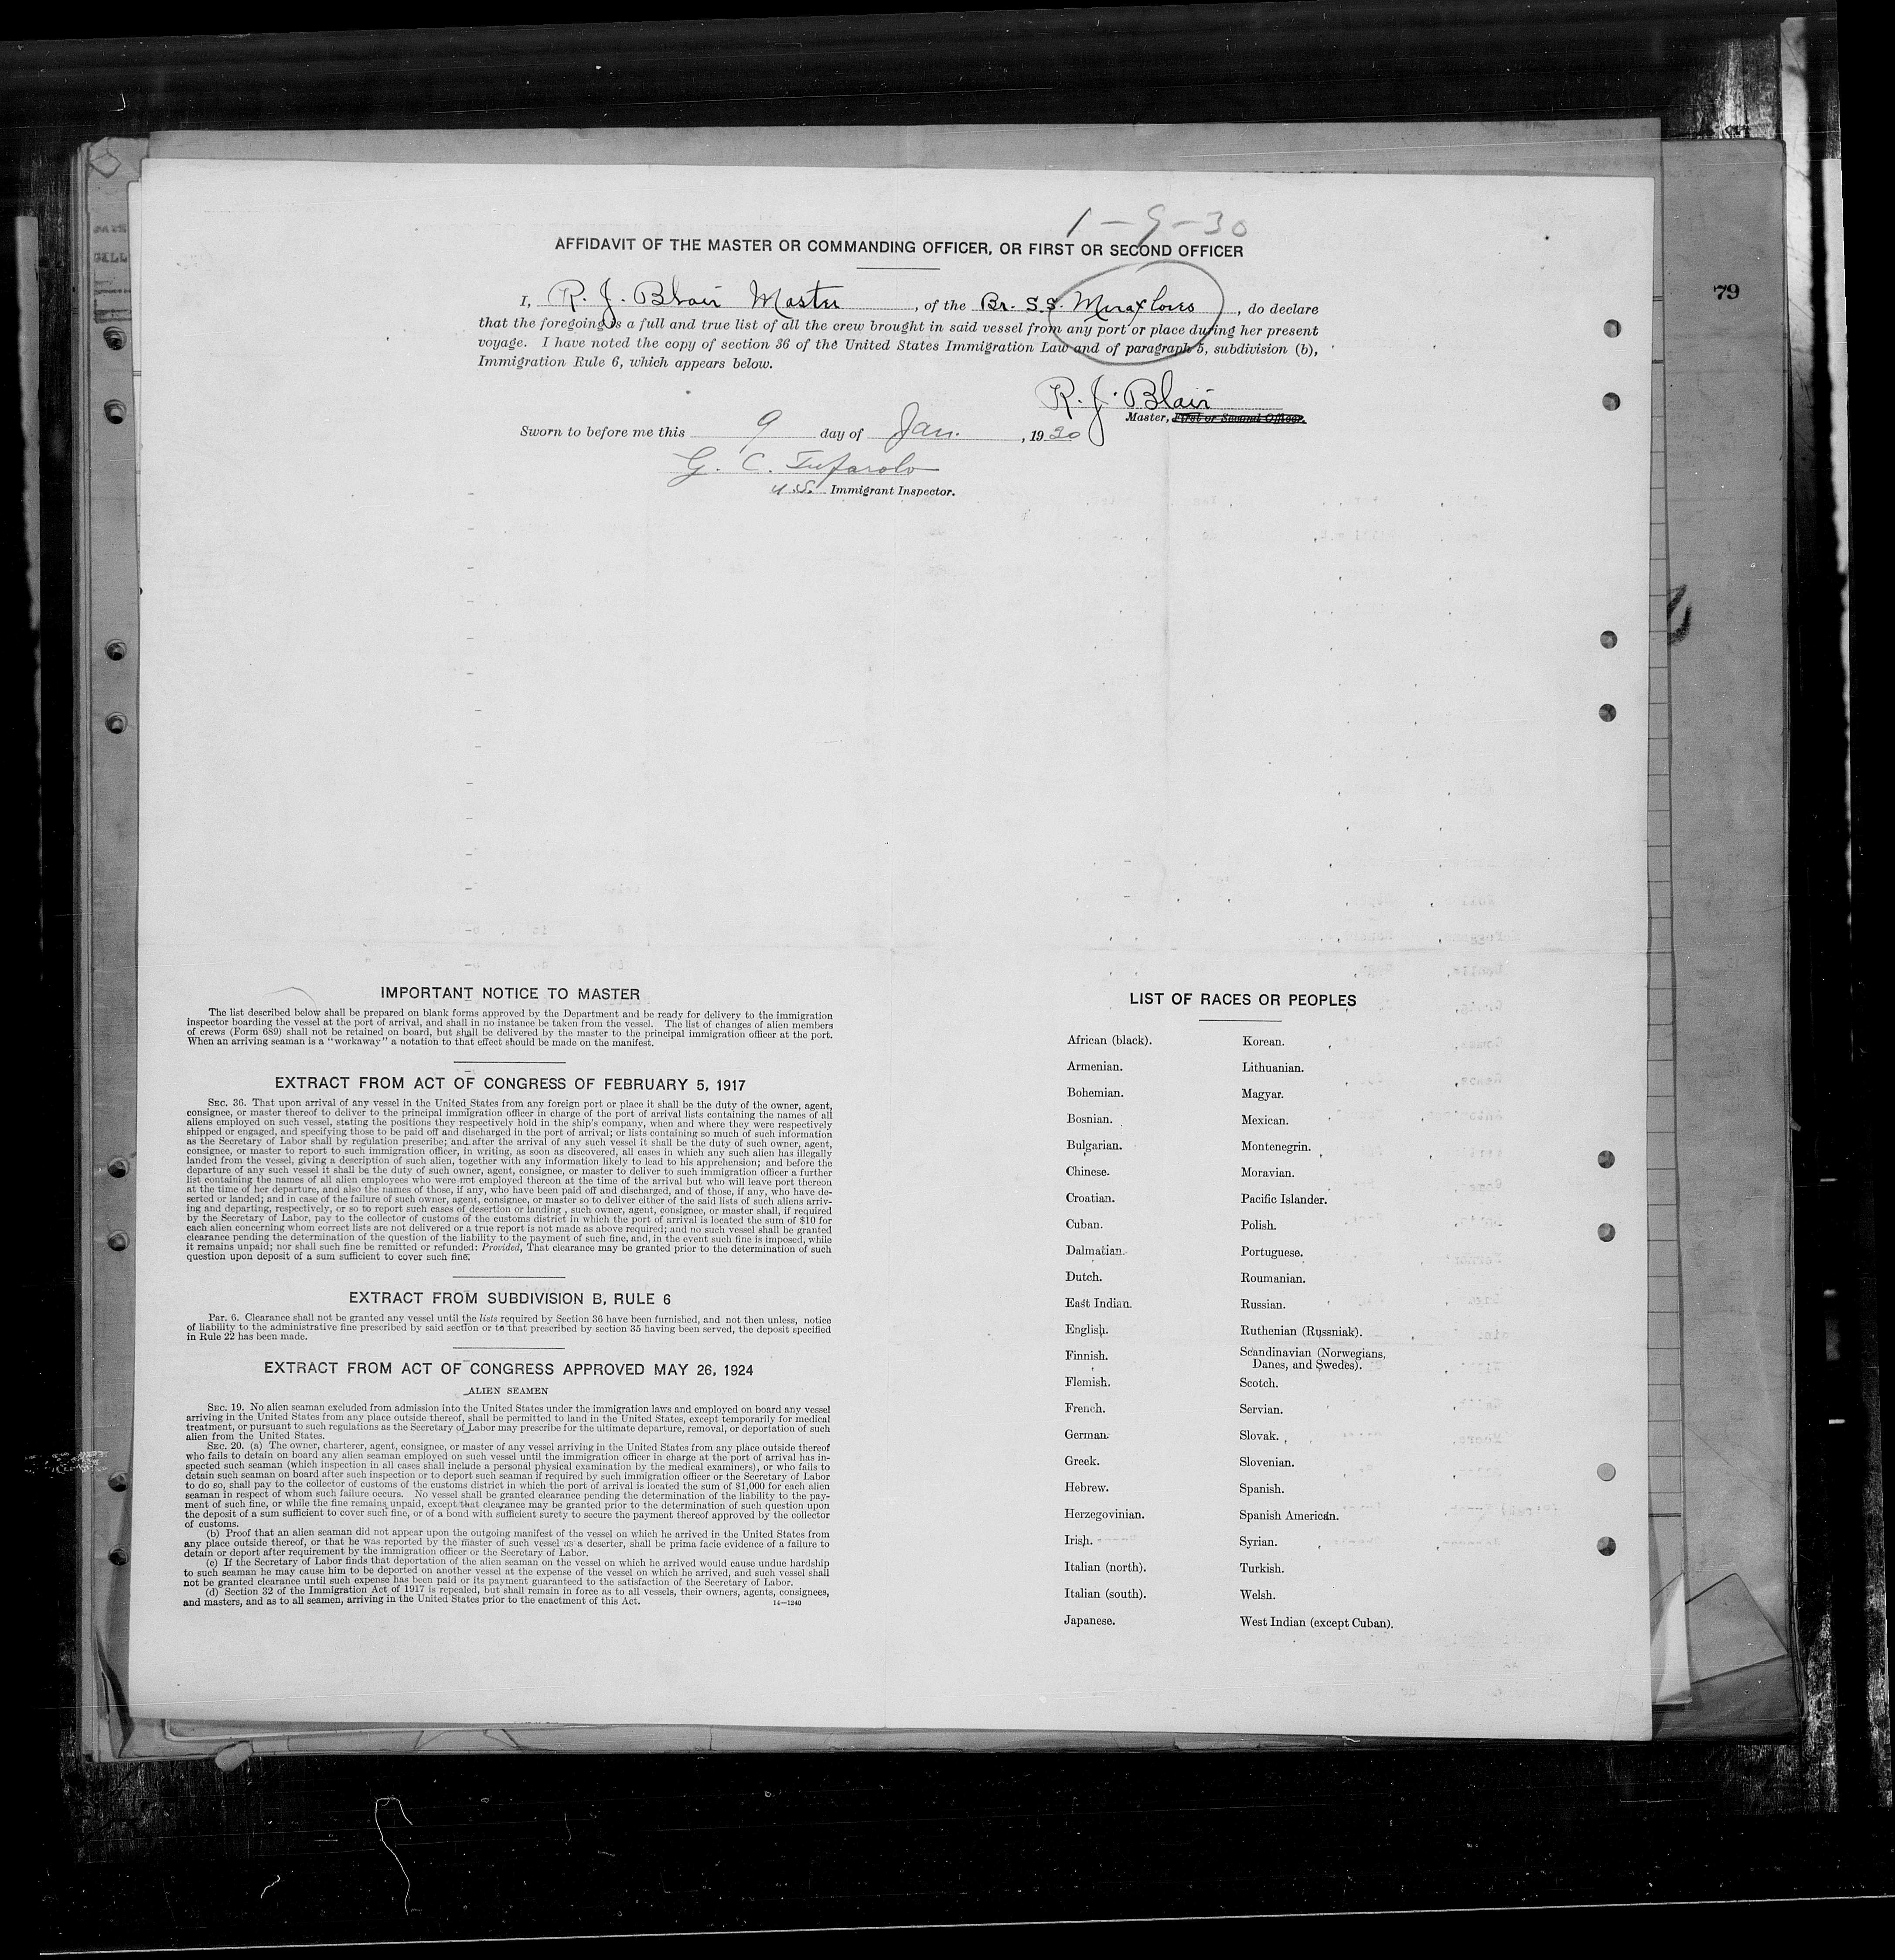 1-9-30
AFFIDAVIT OF THE MASTER OR COMMANDING OFFICER, OR FIRST OR SECOND OFFICER
I, R. J. Blair Master, of the Br. S.S. Miraflores, do declare
that the foregoing is a full and true list of all the crew brought in said vessel from any port or place during her present
voyage. I have noted the copy of section 36 of the United States Immigration Law and of paragraph 5, subdivision (b),
Immigration Rule 6, which appears below.
R. J. Blair
Master, First or Second Officer.
Sworn to before me this 9 day of Jan., 1930
G. C. Tufarolo
U.S. Immigrant Inspector.
79
IMPORTANT NOTICE TO MASTER
The list described below shall be prepared on blank forms approved by the Department and be ready for delivery to the immigration
inspector boarding the vessel at the port of arrival, and shall in no instance be taken from the vessel. The list of changes of alien members
of crews (Form 689) shall not be retained on board, but shall be delivered by the master to the principal immigration officer at the port.
When an arriving seaman is a "workaway" a notation to that effect should be made on the manifest.
EXTRACT FROM ACT OF CONGRESS OF FEBRUARY 5, 1917
SEC. 36. That upon arrival of any vessel in the United States from any foreign port or place it shall be the duty of the owner, agent,
consignee, or master thereof to deliver to the principal immigration officer in charge of the port of arrival lists containing the names of all
aliens employed on such vessel, stating the positions they respectively hold in the ship's company, when and where they were respectively
shipped or engaged, and specifying those to be paid off and discharged in the port of arrival; or lists containing so much of such information
as the Secretary of Labor shall by regulation prescribe; and after the arrival of any such vessel it shall be the duty of such owner, agent,
consignee, or master to report to such immigration officer, in writing, as soon as discovered, all cases in which any such alien has illegally
landed from the vessel, giving a description of such alien, together with any information likely to lead to his apprehension; and before the
departure of any such vessel it shall be the duty of such owner, agent, consignee, or master to deliver to such immigration officer a further
list containing the names of all alien employees who were not employed thereon at the time of the arrival but who will leave port thereon
at the time of her departure, and also the names of those, if any, who have been paid off and discharged, and of those, if any, who have de-
serted or landed; and in case of the failure of such owner, agent, consignee, or master so to deliver either of the said lists of such aliens arriv-
ing and departing, respectively, or so to report such cases of desertion or landing , such owner, agent, consignee, or master shall, if required
by the Secretary of Labor, pay to the collector of customs of the customs district in which the port of arrival is located the sum of $10 for
each alien concerning whom correct lists are not delivered or a true report is not made as above required; and no such vessel shall be granted
clearance pending the determination of the question of the liability to the payment of such fine, and, in the event such fine is imposed, while
it remains unpaid; nor shall such fine be remitted or refunded: Provided, That clearance may be granted prior to the determination of such
question upon deposit of a sum sufficient to cover such fine.
EXTRACT FROM SUBDIVISION B, RULE 6
Par. 6. Clearance shall not be granted any vessel until the lists required by Section 36 have been furnished, and not then unless, notice
of liability to the administrative fine prescribed by said section or to that prescribed by section 35 having been served, the deposit specified
in Rule 22 has been made.
EXTRACT FROM ACT OF CONGRESS APPROVED MAY 26, 1924
ALIEN SEAMEN
SEC. 19. No alien seaman excluded from admission into the United States under the immigration laws and employed on board any vessel
arriving in the United States from any place outside thereof, shall be permitted to land in the United States, except temporarily for medical
treatment, or pursuant to such regulations as the Secretary of Labor may prescribe for the ultimate departure, removal, or deportation of such
alien from the United States.
SEC. 20. (a) The owner, charterer, agent, consignee, or master of any vessel arriving in the United States from any place outside thereof
who fails to detain on board any alien seaman employed on such vessel until the immigration officer in charge at the port of arrival has in-
spected such seaman (which inspection in all cases shall include a personal physical examination by the medical examiners), or who fails to
detain such seaman on board after such inspection or to deport such seaman if required by such immigration officer or the Secretary of Labor
to do so, shall pay to the collector of customs of the customs district in which the port of arrival is located the sum of $1,000 for each alien
seaman in respect of whom such failure occurs. No vessel shall be granted clearance pending the determination of the liability to the pay-
ment of such fine, or while the fine remains unpaid, except that clearance may be granted prior to the determination of such question upon
the deposit of a sum sufficient to cover such fine, or of a bond with sufficient surety to secure the payment thereof approved by the collector
of customs.
(b) Proof that an alien seaman did not appear upon the outgoing manifest of the vessel on which he arrived in the United States from
any place outside thereof, or that he was reported by the master of such vessel as a deserter, shall be prima facie evidence of a failure to
detain or deport after requirement by the immigration officer or the Secretary of Labor.
(c) If the Secretary of Labor finds that deportation of the alien seaman on the vessel on which he arrived would cause undue hardship
to such seaman he may cause him to be deported on another vessel at the expense of the vessel on which he arrived, and such vessel shall
not be granted clearance until such expense has been paid or its payment guaranteed to the satisfaction of the Secretary of Labor.
(d) Section 32 of the Immigration Act of 1917 is repealed, but shall remain in force as to all vessels, their owners, agents, consignees,
and masters, and as to all seamen, arriving in the United States prior to the enactment of this Act.
14—1240
LIST OF RACES OR PEOPLES
African (black).
Armenian.
Bohemian.
Bosnian.
Bulgarian.
Chinese.
Croatian.
Cuban.
Dalmatian.
Dutch.
East Indian.
English.
Finnish.
Flemish.
French.
German.
Greek.
Hebrew.
Herzegovinian.
Irish.
Italian (north).
Italian (south).
Japanese.
Korean.
Lithuanian.
Magyar.
Mexican.
Montenegrin.
Moravian.
Pacific Islander.
Polish.
Portuguese.
Roumanian.
Russian.
Ruthenian (Russniak).
Scandinavian (Norwegians,
Danes, and Swedes).
Scotch.
Servian.
Slovak.
Slovenian.
Spanish.
Spanish American.
Syrian.
Turkish.
Welsh.
West Indian (except Cuban).